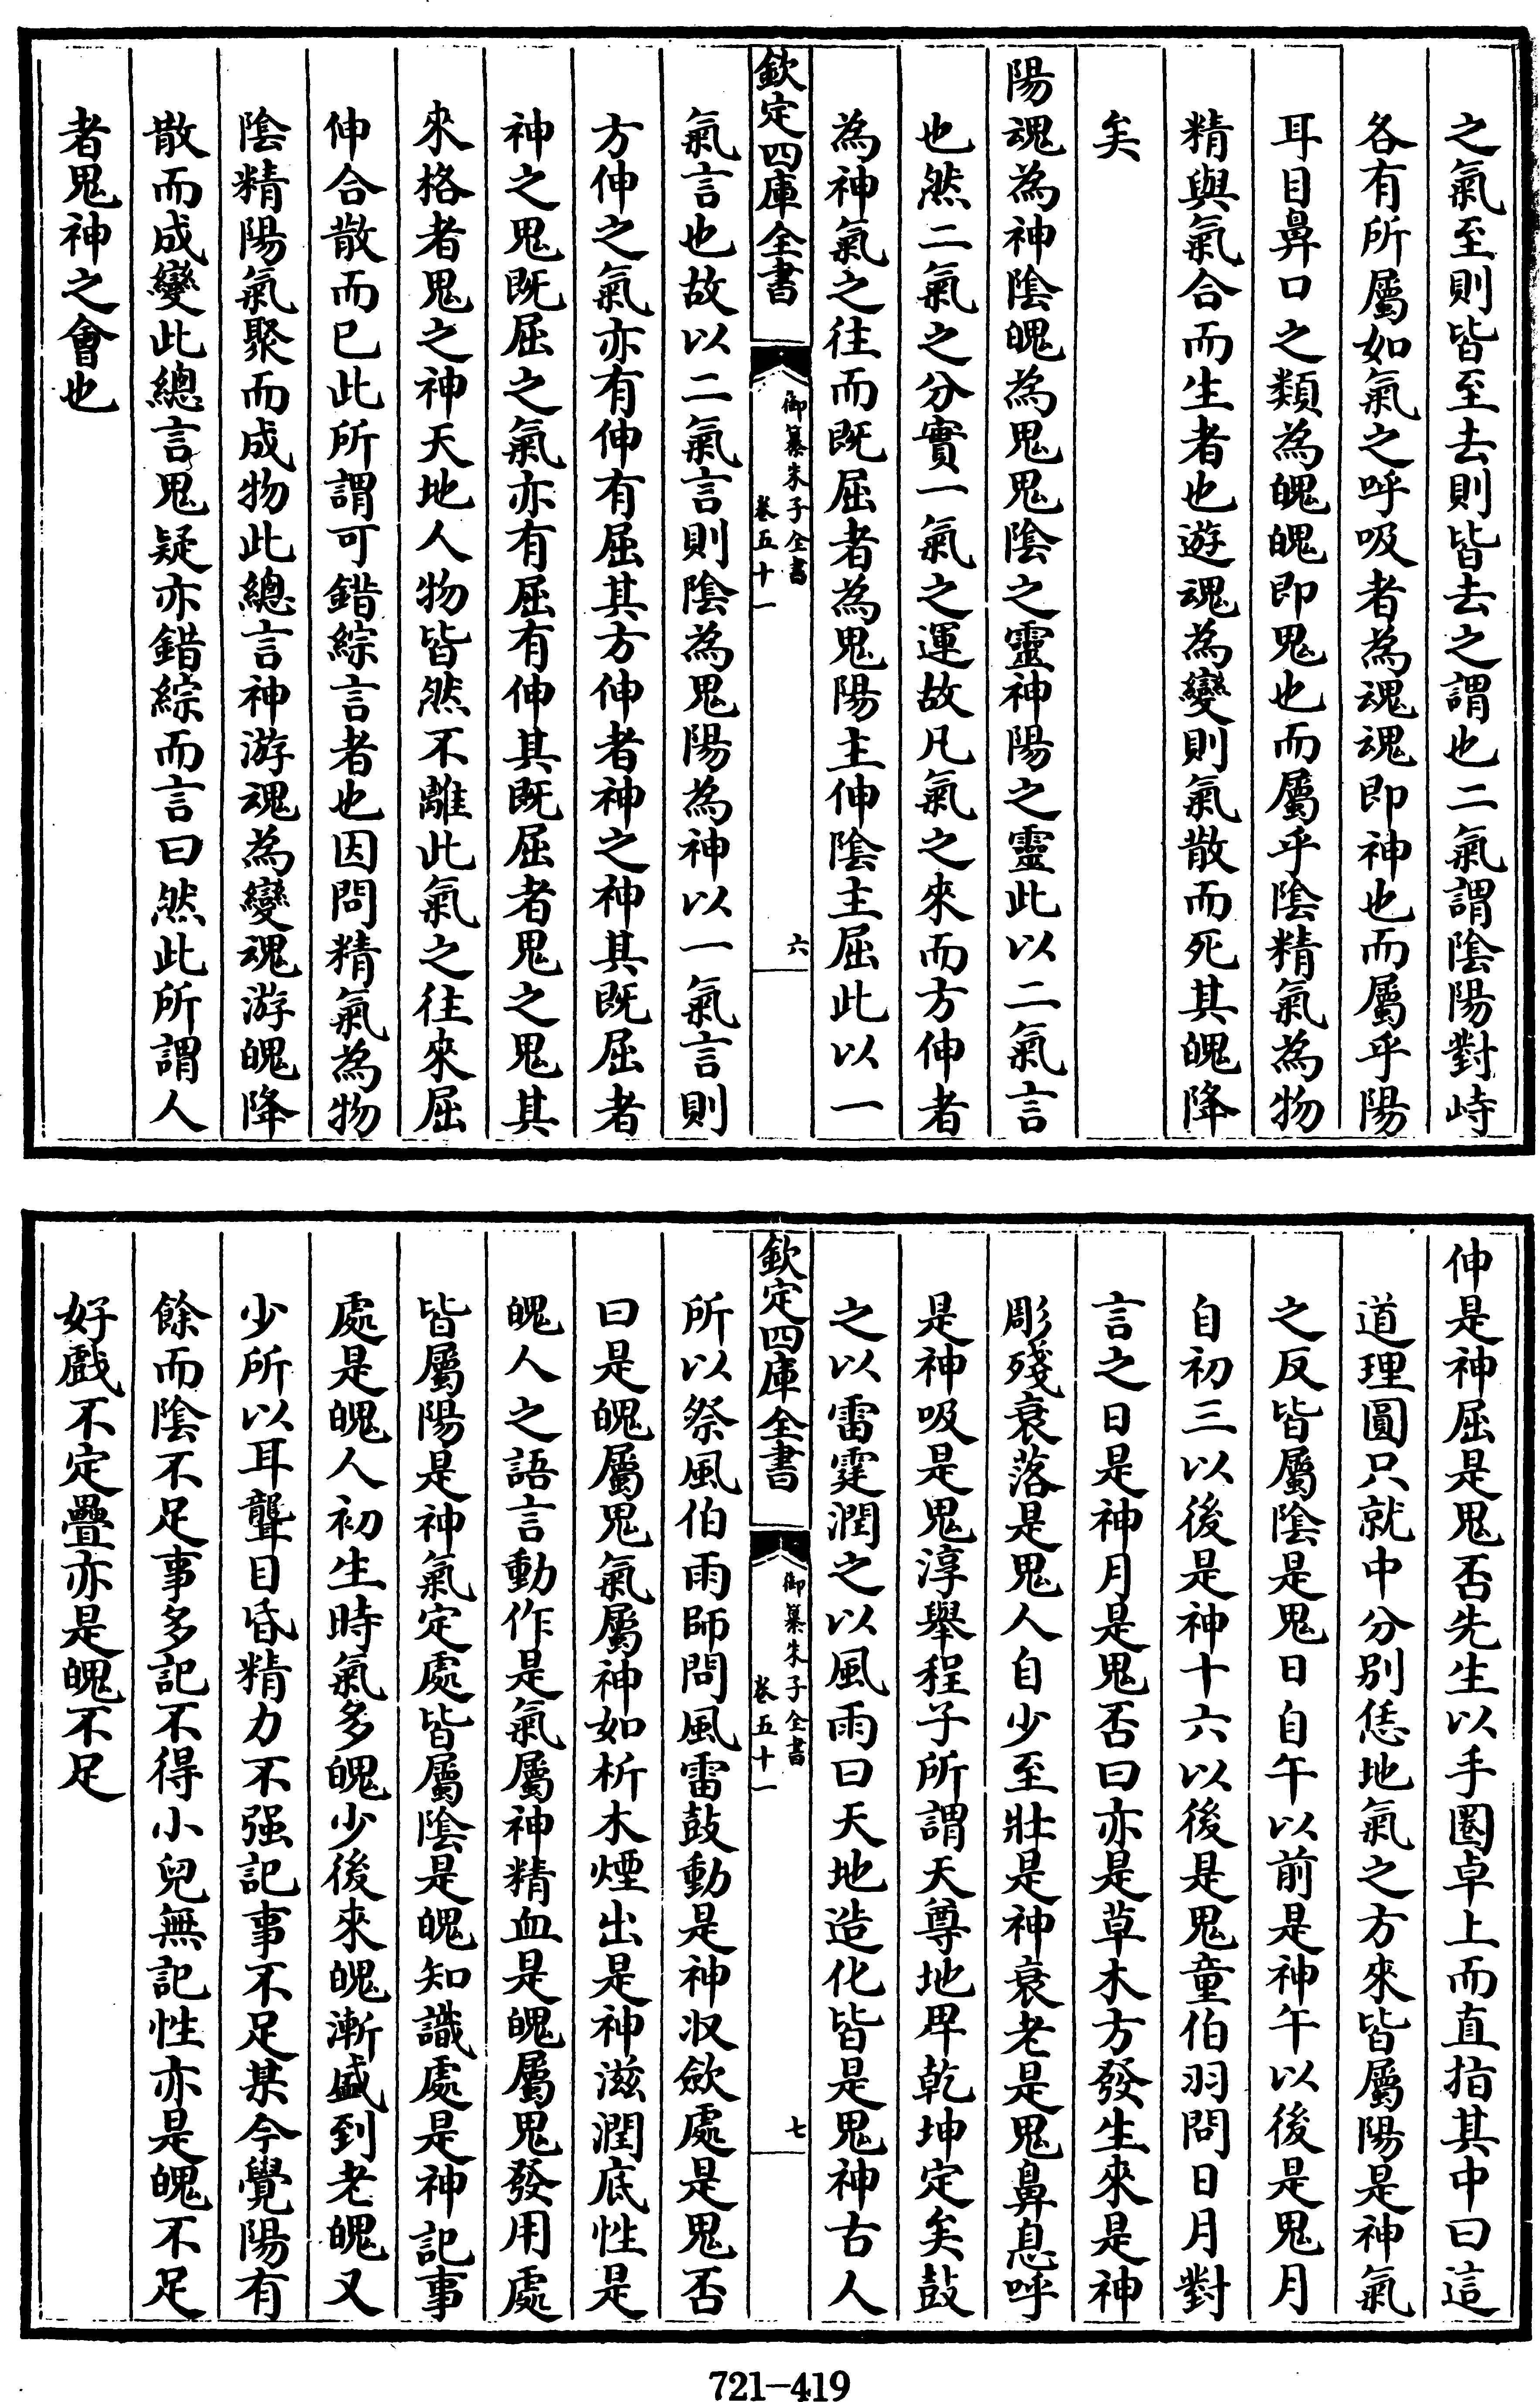 之氣至則皆至去則皆去之謂也二氣謂陰陽對峙
各有所屬如氣之呼吸者為魂魂即神也而屬乎陽
耳目鼻口之類為魄魄即鬼也而屬乎陰精氣為物
精與氣合而生者也遊魂為變則氣散而死其魄降
矣
陽魂為神陰魄為鬼鬼陰之靈神陽之靈此以二氣言
也然二氣之分實一氣之運故凡氣之來而方伸者
為神氣之往而既屈者為鬼陽主伸陰主屈此以一
欽定四庫全書
御纂朱子全書
卷五十一
六
氣言也故以二氣言則陰為鬼陽為神以一氣言則
方伸之氣亦有伸有屈其方伸者神之神其既屈者
神之鬼既屈之氣亦有屈有伸其既屈者鬼之鬼其
來格者鬼之神天地人物皆然不離此氣之往來屈
伸合散而已此所謂可錯綜言者也因問精氣為物
陰精陽氣聚而成物此總言神游魂為變魂游魄降
散而成變此總言鬼疑亦錯綜而言曰然此所謂人
者鬼神之會也
伸是神屈是鬼否先生以手圈卓上而直指其中曰這
道理圓只就中分別恁地氣之方來皆屬陽是神氣
之反皆屬陰是鬼日自午以前是神午以後是鬼月
自初三以後是神十六以後是鬼童伯羽問日月對
言之日是神月是鬼否曰亦是草木方發生來是神
彫殘衰落是鬼人自少至壯是神衰老是鬼鼻息呼
是神吸是鬼淳舉程子所謂天尊地卑乾坤定矣鼓
之以雷霆潤之以風雨曰天地造化皆是鬼神古人
欽定四庫全書
御纂朱子全書
卷五十一
七
所以祭風伯雨師問風雷鼓動是神收斂處是鬼否
曰是魄屬鬼氣屬神如析木煙出是神滋潤底性是
魄人之語言動作是氣屬神精血是魄屬鬼發用處
皆屬陽是神氣定處皆屬陰是魄知識處是神記事
處是魄人初生時氣多魄少後來魄漸盛到老魄又
少所以耳聾目昏精力不强記事不足某今覺陽有
餘而陰不足事多記不得小兒無記性亦是魄不足
好戲不定疊亦是魄不足
721-419